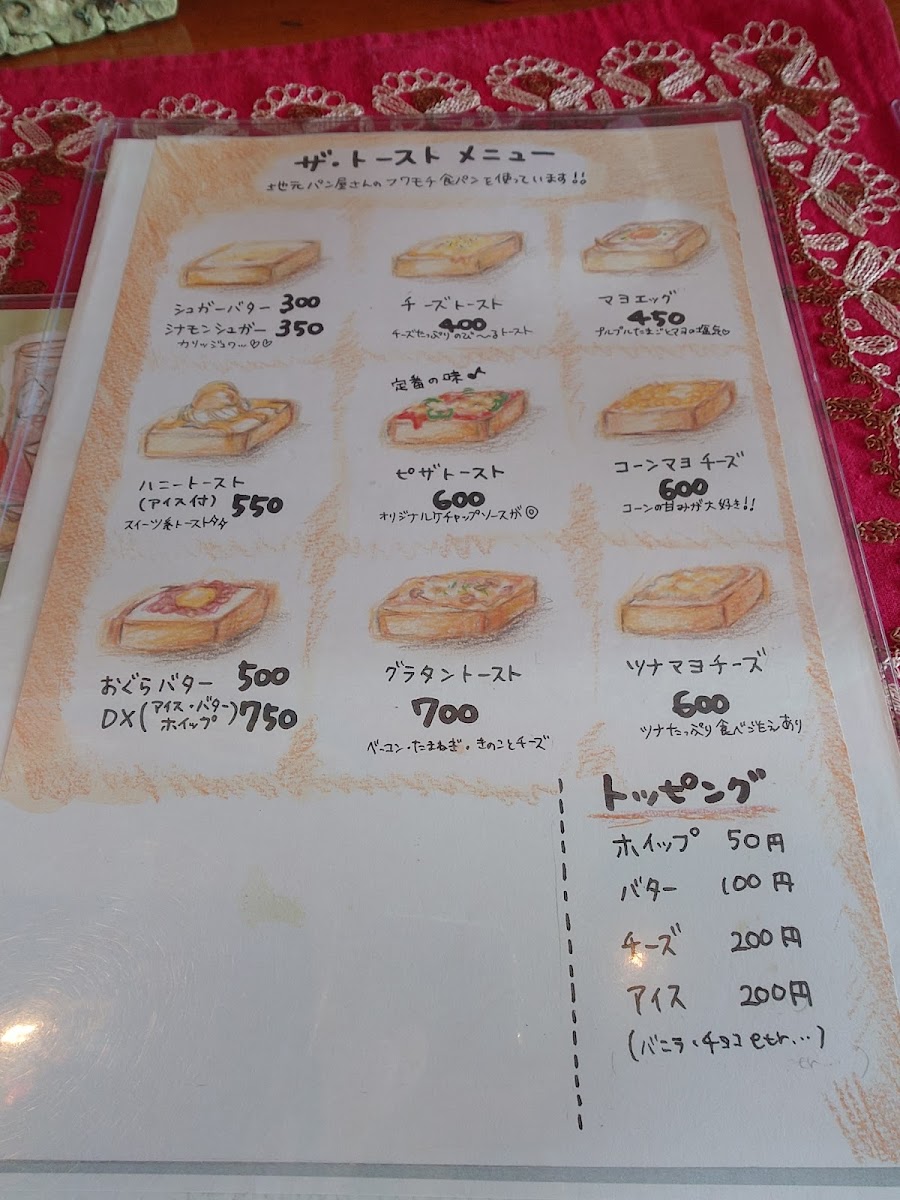 ザ・トースト メニュー
地元パン屋さんのフワモチ食パンを使っています!!
シュガーバター 300
シナモンシュガー 350
カリッジュワ…♡♡
チーズトースト
400
チーズたっぷりのび〜るトースト
マヨエッグ
450
プルプルたまごとマヨの塩気♡
ハニートースト
(アイス付) 550
スイーツ系トースト
定番の味♪
ピザトースト
600
オリジナルケチャップソースが◎
コーンマヨチーズ
600
コーンの甘みが大好き!!
おぐらバター 500
DX(アイス・バター
ホイップ)750
グラタントースト
700
ベーコン・たまねぎ・きのことチーズ
ツナマヨチーズ
600
ツナたっぷり食べごたえあり
トッピング
ホイップ 50円
バター 100円
チーズ 200円
アイス 200円
(バニラ・チョコetr…)